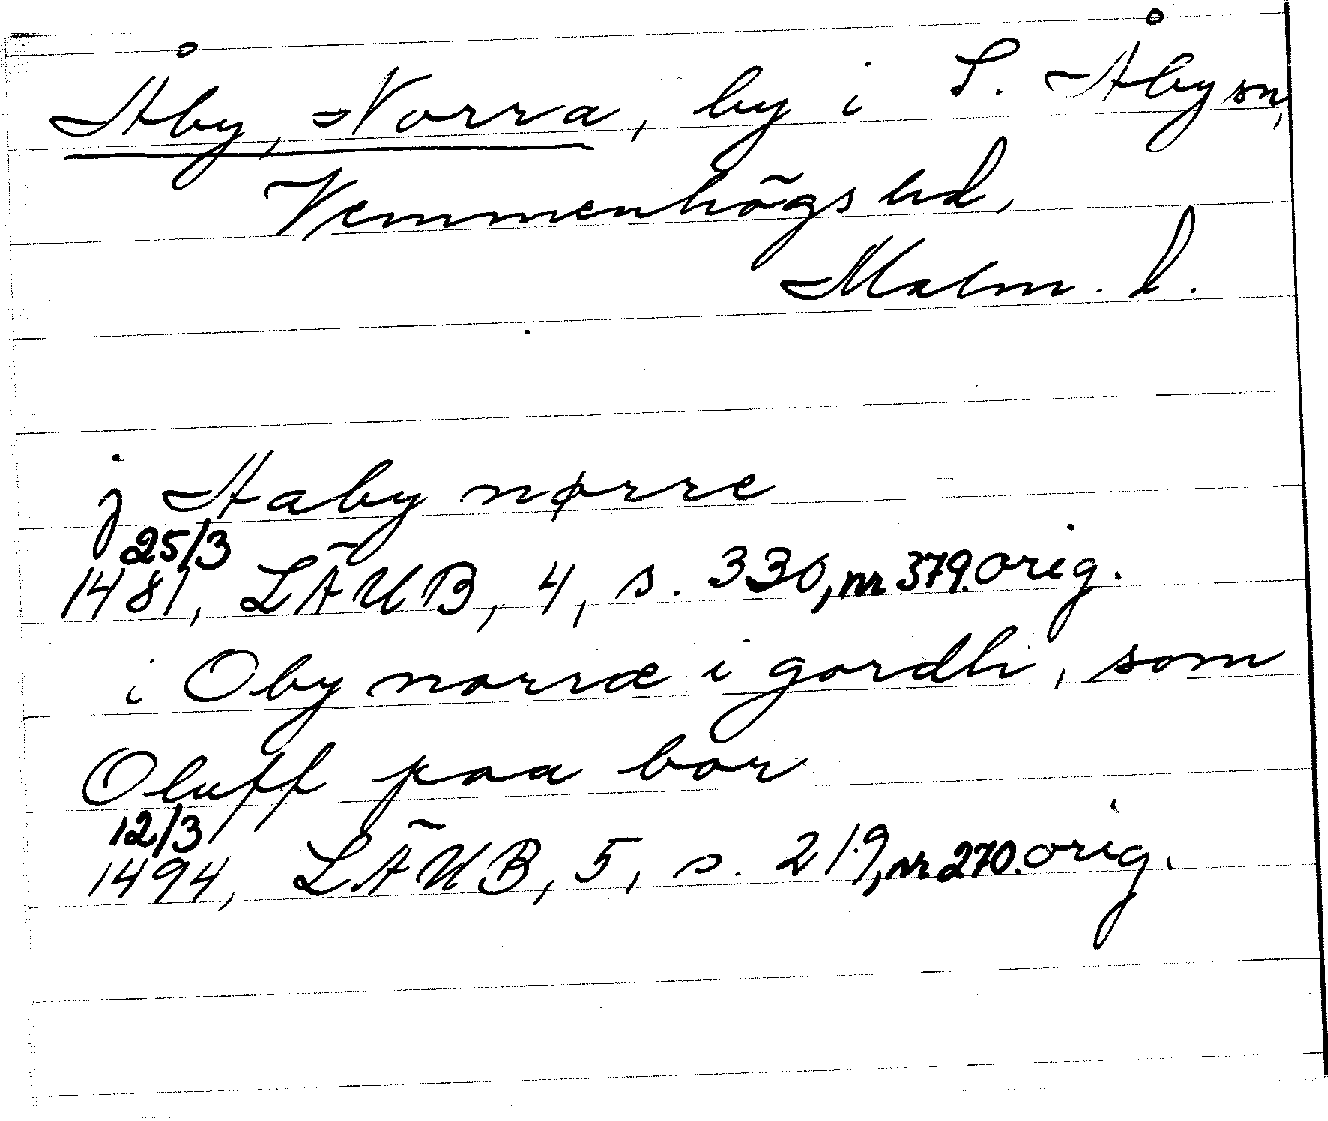 Åby, Norra, by i S. Åby sn,
Vemmenhögs hd,
Malm. l.
j Aaby nørre
25/3
1481, LÄUB, 4, s. 330, nr 379. orig.
i Oby norræ i gordh, som
Oluff paa bor
12/3
1494, LÄUB, 5, s. 219, nr 270. orig.